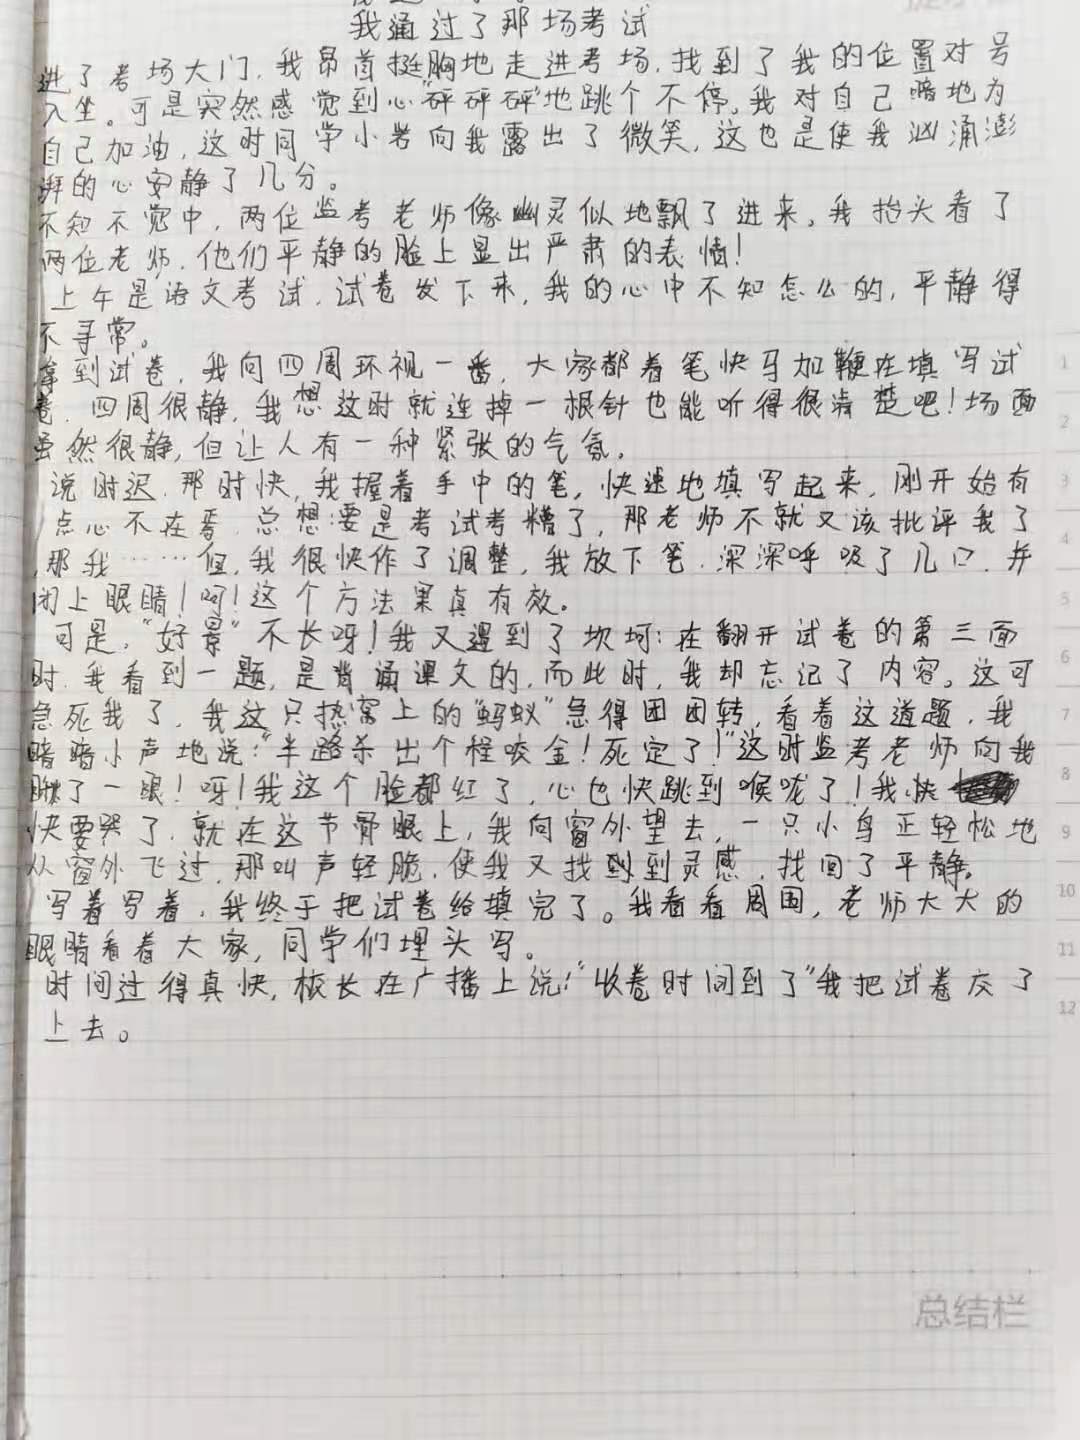 我通过了那场考试
进了考场大门,我昂首挺胸地走进考场,找到了我的位置对号
入坐。可是突然感觉到心"砰砰砰"地跳个不停。我对自己暗地为
自己加油,这时同学小岩向我露出了微笑,这也是使我汹涌澎
湃的心安静了几分。
不知不觉中,两位监考老师像幽灵似地飘了进来。我抬头看了
两位老师.他们平静的脸上显出严肃的表情!
上午是语文考试.试卷发下来,我的心中不知怎么的,平静得
不寻常。
拿到试卷,我向四周环视一番,大家都着笔快马加鞭在填写试
卷.四周很静,我想这时就连掉一根针也能听得很清楚吧!场面
虽然很静,但让人有一种紧张的气氛。
说时迟.那时快,我握着手中的笔,快速地填写起来,刚开始有
点心不在焉.总想:要是考试考糟了,那老师不就又该批评我了
,那我……但,我很快作了调整,我放下笔.深深呼吸了几口.并
闭上眼睛!呵!这个方法果真有效。
可是,"好景"不长呀!我又遇到了坎坷:在翻开试卷的第三面
时.我看到一题,是背诵课文的,而此时,我却忘记了内容。这可
急死我了,我这只热窝上的"蚂蚁"急得团团转,看着这道题,我
暗暗小声地说:"半路杀出个程咬金!死定了!"这时监考老师向我
瞅了一眼!呀!我这个脸都红了,心也快跳到喉咙了!我快
快要哭了.就在这节骨眼上,我向窗外望去,一只小鸟正轻松地
从窗外飞过.那叫声轻脆,使我又找到到灵感,找回了平静。
写着写着,我终于把试卷给填完了。我看看周围,老师大大的
眼睛看着大家,同学们埋头写。
时间过得真快,校长在广播上说:"收卷时间到了"我把试卷交了
上去。
1
2
3
4
5
6
7
8
9
10
11
12
总结栏